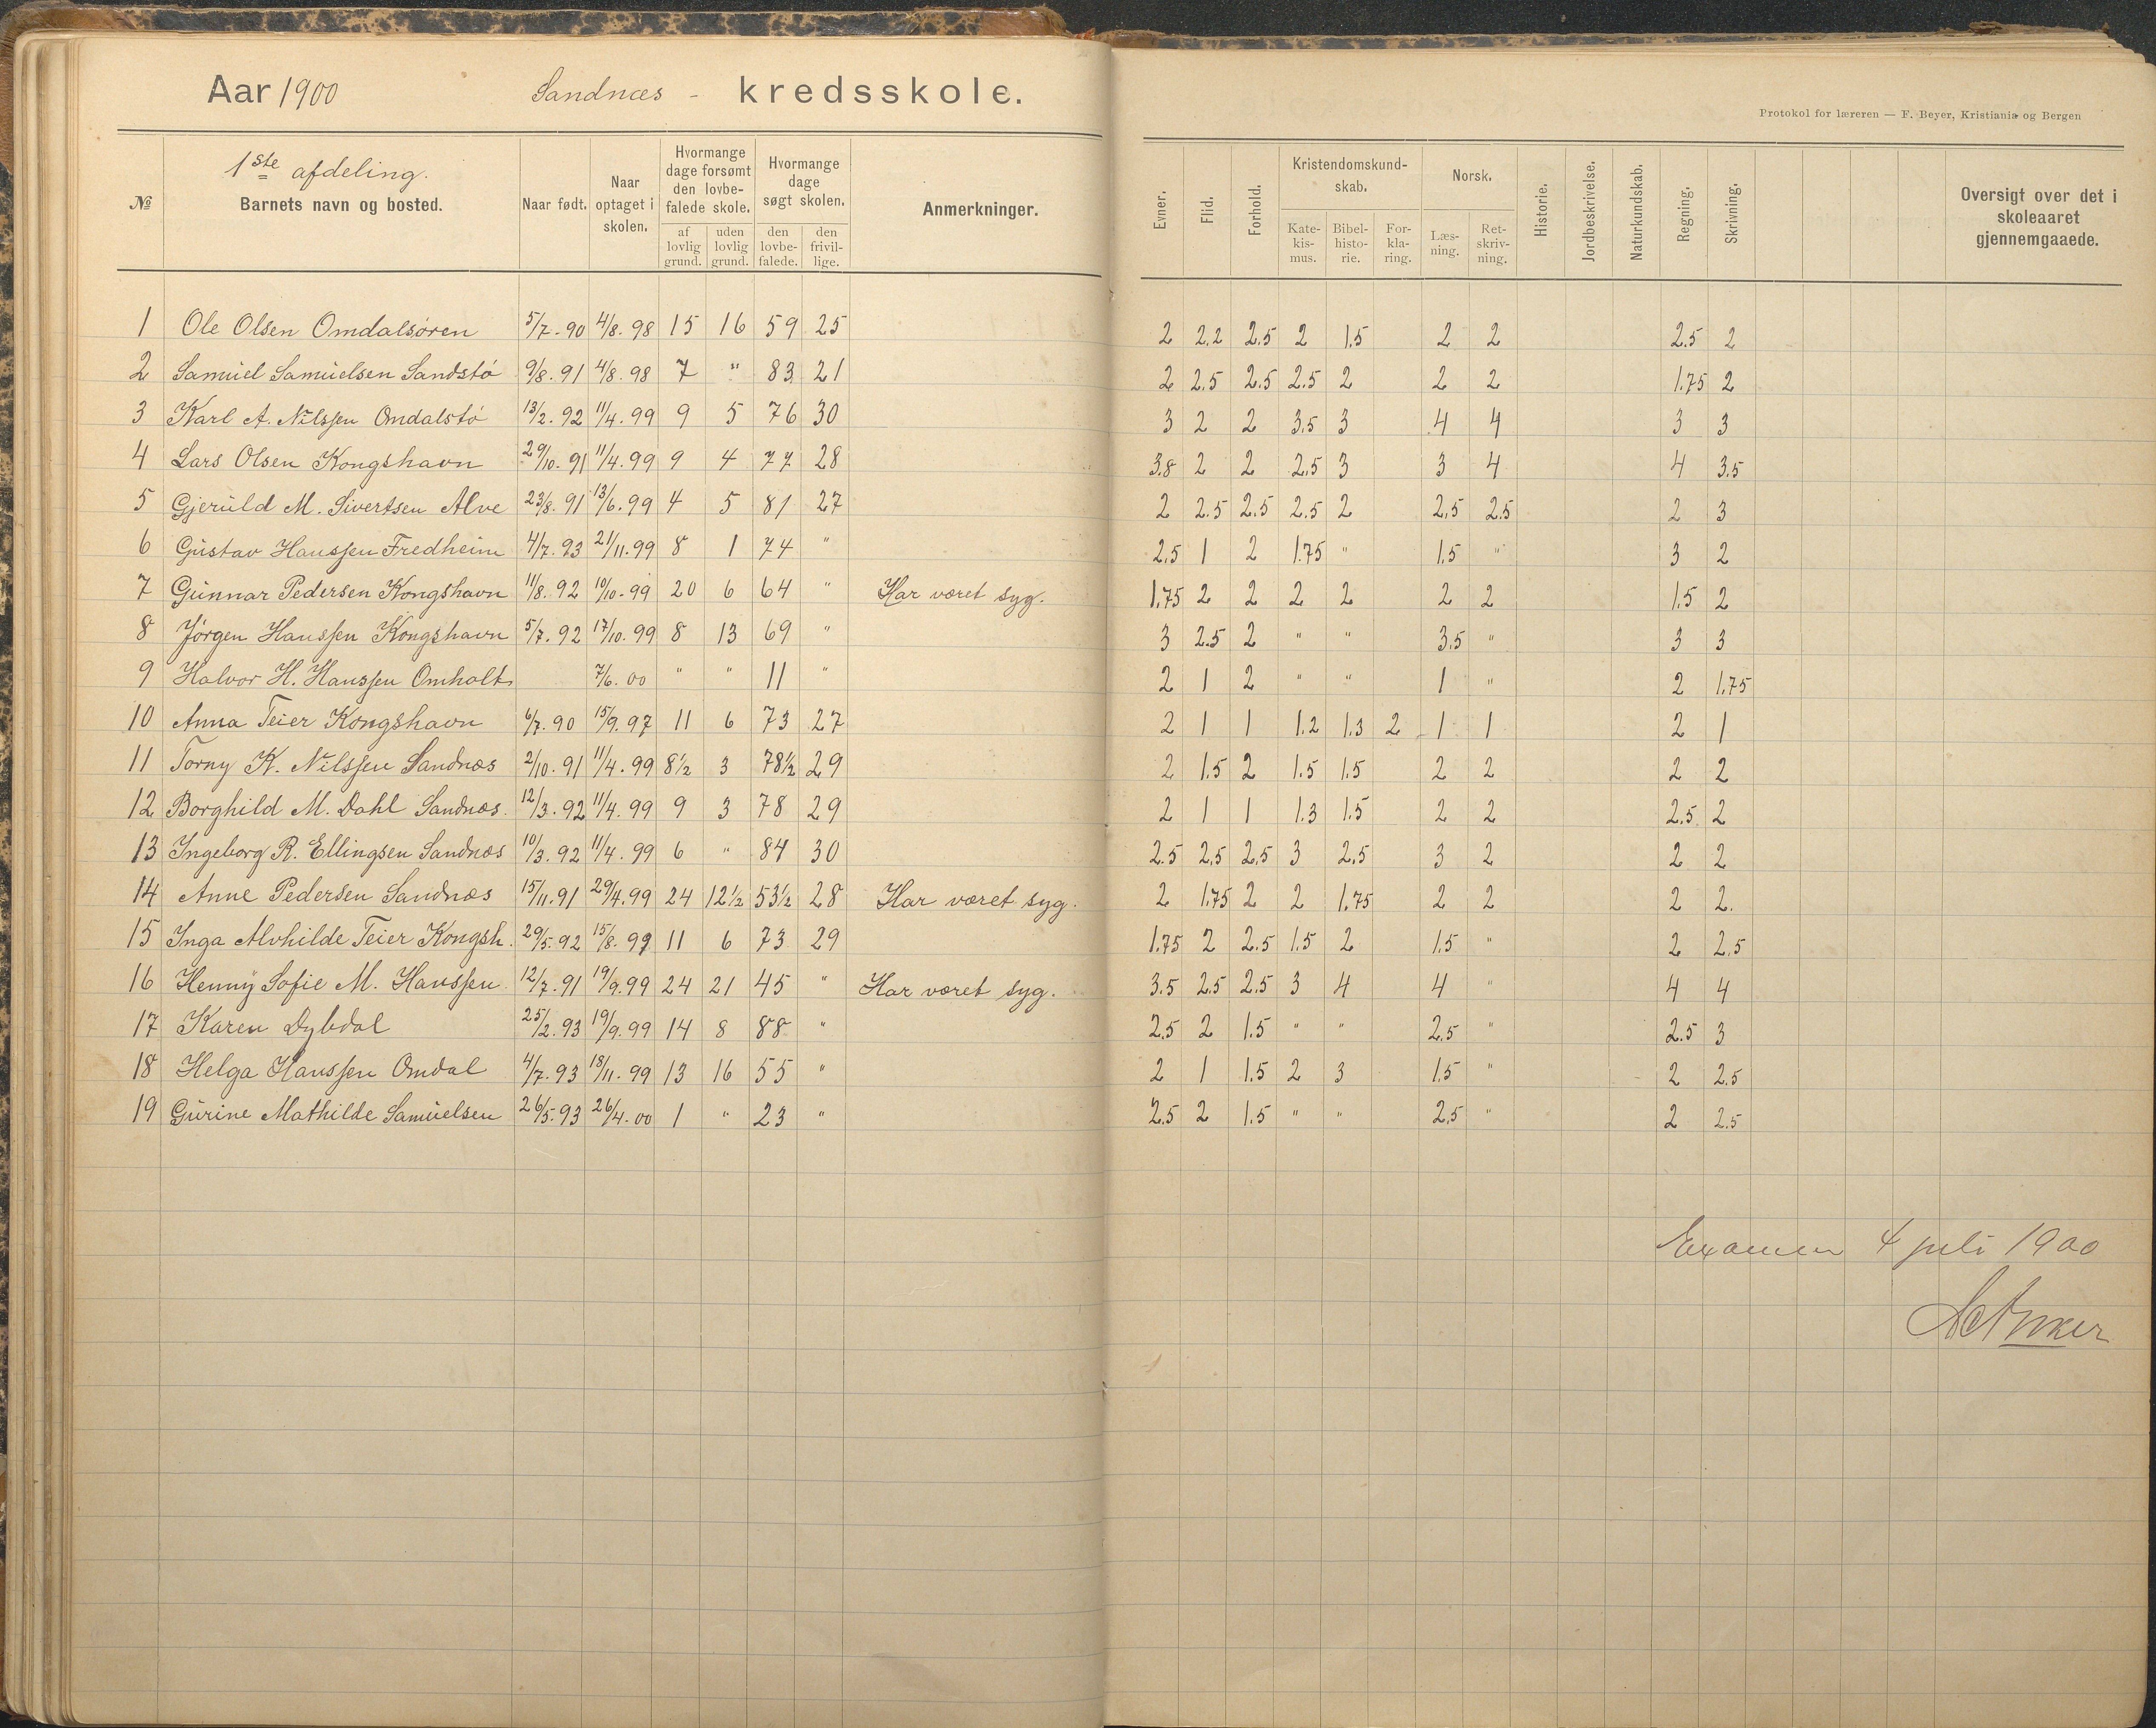 Aar 1900 Sandnæs - kredsskole.
Protokol for læreren — F. Beyer, Kristiania og Bergen
№
1ste afdeling.
Barnets navn og bosted.
Naar født.
Naar optaget i skolen.
Hvormange dage forsømt den lovbefalede skole.
af lovlig grund.
uden lovlig grund.
Hvormange dage søgt skolen.
den lovbefalede.
den frivillige.
Anmerkninger.
Evner.
Flid.
Forhold.
Kristendomskundskab.
Katekismus.
Bibelhistorie.
Forklaring.
Norsk.
Læsning.
Retskrivning.
Historie.
Jordbeskrivelse.
Naturkundskab.
Regning.
Skrivning.
Oversigt over det i skoleaaret gjennemgaaede.
1 Ole Olsen Omdalsøren 5/7. 90 4/8. 98 15 16 59 25 2 2,2 2,5 2 1,5 2 2 2.5 2
2 Samuel Samuelsen Sandstø 9/8. 91 4/8. 98 7 " 83 21 2 2,5 2.5 2.5 2 2 2 1.75 2
3 Karl A. Nilssen Omdalstø 13/2. 92 11/4. 99 9 5 76 30 3 2 2 3,5 3 4 4 3 3
4 Lars Olsen Kongshavn 29/10. 91 11/4. 99 9 4 77 28 3.8 2 2 2,5 3 3 4 4 3.5
5 Gjeruld M. Sivertsen Alve 23/8. 91 13/6. 99 4 5 81 27 2 2.5 2.5 2.5 2 2,5 2.5 2 3
6 Gustav Hanssen Fredheim 4/7. 93 21/11. 99 8 1 74 " 2,5 1 2 1.75 " 1,5 " 3 2
7 Gunnar Pedersen Kongshavn 11/8. 92 10/10. 99 20 6 64 " Har været syg. 1,75 2 2 2 2 2 2 1,5 2
8 Jørgen Hanssen Kongshavn 5/7. 92 17/10. 99 8 13 69 " 3 2.5 2 " " 3,5 " 3 3
9 Halvor H. Hanssen Omholt 7/6. 00 " " 11 " 2 1 2 " " 1 " 2 1,75
10 Anna Teier Kongshavn 6/7. 90 15/9. 97 11 6 73 27 2 1 1 1,2 1,3 2 1 1 2 1
11 Torny K. Nilssen Sandnæs 2/10. 91 11/4. 99 8½ 3 78½ 29 2 1.5 2 1.5 1.5 2 2 2 2
12 Borghild M. Dahl Sandnæs. 12/3. 92 11/4. 99 9 3 78 29 2 1 1 1.3 1.5 2 2 2,5 2
13 Ingeborg R. Ellingsen Sandnæs 10/3. 92 11/4. 99 6 " 84 30 2.5 2,5 2,5 3 2,5 3 2 2 2
14 Anne Pedersen Sandnæs 15/11. 91 29/4. 99 24 12½ 53½ 28 Har været syg. 2 1.75 2 2 1,75 2 2 2 2.
15 Inga Alvhilde Teier Kongsh. 29/5. 92 15/8. 99 11 6 73 29 1.75 2 2.5 1.5 2 1.5 " 2 2,5
16 Henny Sofie M. Hanssen 12/7. 91 19/9. 99 24 21 45 " Har været syg. 3.5 2.5 2.5 3 4 4 " 4 4
17 Karen Dybdal 25/2. 93 19/9. 99 14 8 88 " 2,5 2 1.5 " " 2,5 " 2.5 3
18 Helga Hanssen Omdal 4/7. 93 18/11. 99 13 16 55 " 2 1 1.5 2 3 1.5 " 2 2.5
19 Gurine Mathilde Samuelsen 26/5. 93 26/4. 00 1 " 23 " 2.5 2 1.5 " " 2,5 " 2 2.5
Examen 4 juli 1900